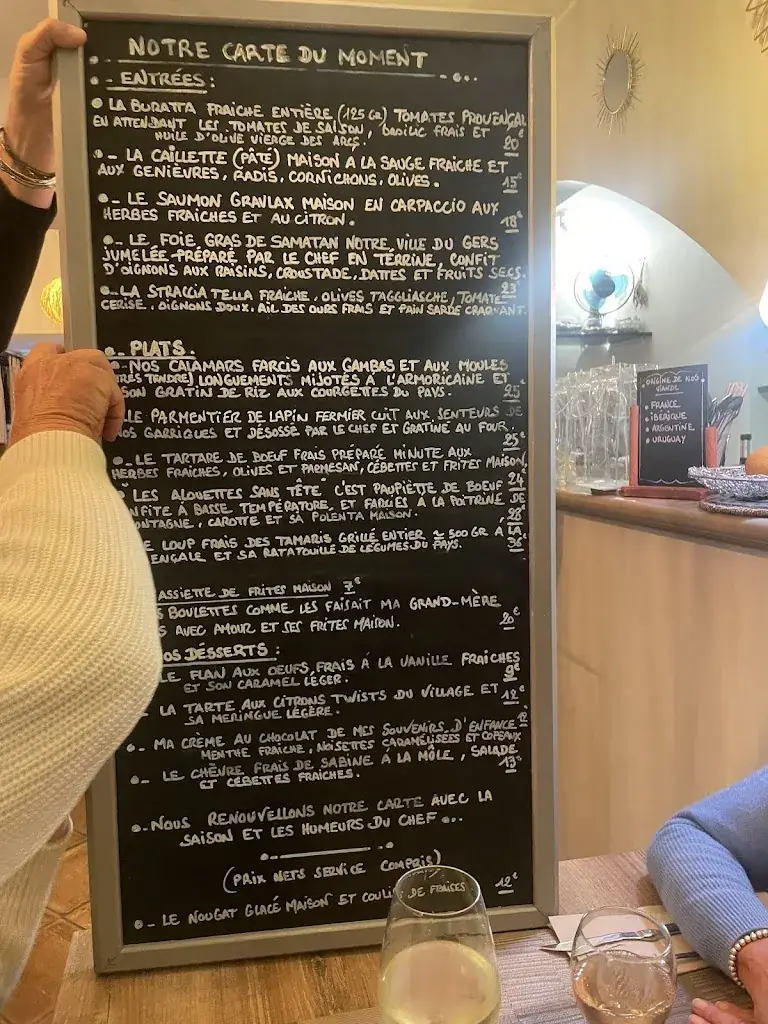 NOTRE CARTE DU MOMENT
- ENTRÉES :
LA BURATTA FRAICHE ENTIÈRE (125 GR) TOMATES PROVENÇAL
EN ATTENDANT LES TOMATES DE SAISON, BASILIC FRAIS ET
HUILE D'OLIVE VIERGE DES ARCS. 20€
- LA CAILLETTE (PÂTÉ) MAISON A LA SAUGE FRAICHE ET
AUX GENIÈVRES, RADIS, CORNICHONS, OLIVES. 15€
- LE SAUMON GRAVLAX MAISON EN CARPACCIO AUX
HERBES FRAICHES ET AU CITRON. 18€
- LE FOIE GRAS DE SAMATAN NOTRE VILLE DU GERS
JUMELÉE PRÉPARÉ PAR LE CHEF EN TERRINE, CONFIT
D'OIGNONS AUX RAISINS, CROUSTADE, DATTES ET FRUITS SECS.
23€
- LA STRACCIATELLA FRAICHE, OLIVES TAGGLIASCHE, TOMATE
CERISE, OIGNONS DOUX, AIL DES OURS FRAIS ET PAIN SARDE CRAQUANT.
- PLATS.
- NOS CALAMARS FARCIS AUX GAMBAS ET AUX MOULES
(TRÈS TENDRE) LONGUEMENTS MIJOTÉS A L'ARMORICAINE ET
SON GRATIN DE RIZ AUX COURGETTES DU PAYS. 25€
LE PARMENTIER DE LAPIN FERMIER CUIT AUX SENTEURS DE
NOS GARRIGUES ET DÉSOSSÉ PAR LE CHEF ET GRATINÉ AU FOUR.
25€
- LE TARTARE DE BOEUF FRAIS PRÉPARÉ MINUTE AUX
HERBES FRAICHES, OLIVES ET PARMESAN, CÉBETTES ET FRITES MAISON.
24€
LES ALOUETTES SANS TÊTE C'EST PAUPIETTE DE BOEUF
NFITE A BASSE TEMPÉRATURE, ET FARCIES A LA POITRINE DE
ONTAGNE, CAROTTE ET SA POLENTA MAISON. 28€
E LOUP FRAIS DES TAMARIS GRILLÉ ENTIER ≃ 500 GR A LA
ENÇALE ET SA RATATOUILLE DE LÉGUMES DU PAYS. 36€
ASSIETTE DE FRITES MAISON 7€
S BOULETTES COMME LES FAISAIT MA GRAND-MÈRE
S AVEC AMOUR ET SES FRITES MAISON. 20€
OS DÉSSERTS :
LE FLAN AUX OEUFS FRAIS À LA VANILLE FRAICHES
ET SON CARAMEL LÉGER. 9€
LA TARTE AUX CITRONS TWISTS DU VILLAGE ET
SA MERINGUE LÉGÈRE. 12€
- MA CRÈME AU CHOCOLAT DE MES SOUVENIRS D'ENFANCE 12
MENTHE FRAICHE, NOISETTES CARAMÉLISÉES ET COPEAUX
- LE CHÈVRE FRAIS DE SABINE À LA MÔLE, SALADE
ET CÉBETTES FRAICHES. 13€
- NOUS RENOUVELLONS NOTRE CARTE AVEC LA
SAISON ET LES HUMEURS DU CHEF ...
(PRIX NETS SERVICE COMPRIS)
- LE NOUGAT GLACÉ MAISON ET COULIS DE FRAISES 12€
ORIGINE DE NOS
VIANDE
FRANCE
IBÉRIQUE
ARGENTINE
URUGUAY